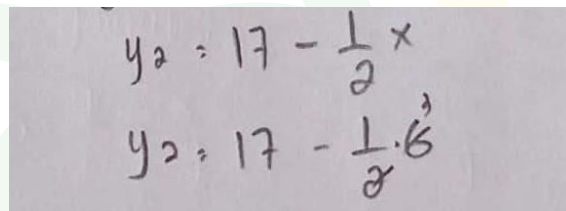 y₂ = 17 - 1/2 x
y₂ = 17 - 1/2 . 6 3